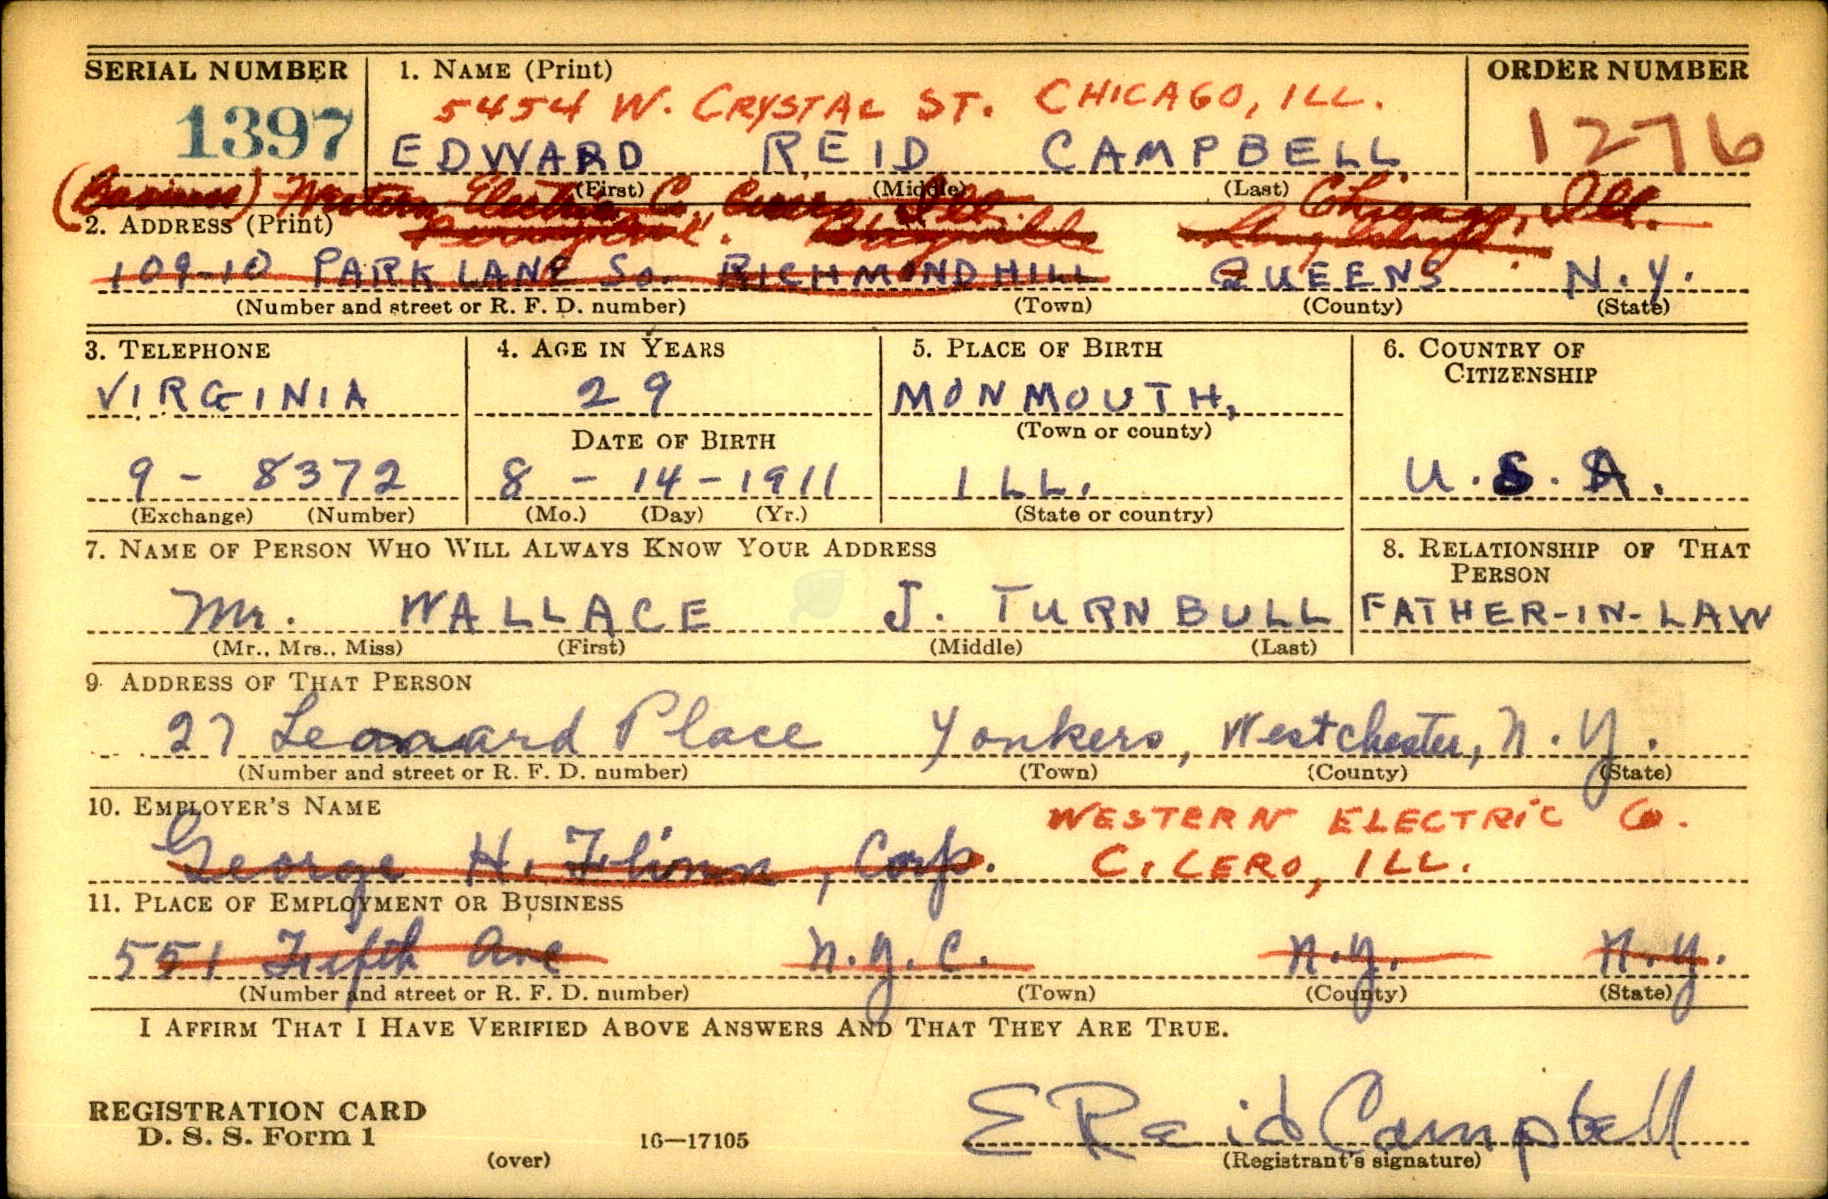 SERIAL NUMBER 1. NAME (Print) ORDER NUMBER
5454 W. CRYSTAL ST. CHICAGO, ILL.
1397 EDWARD REID CAMPBELL 1276
(First) (Middle) (Last)
(Business) Western Electric Co. Cicero, Ill. Chicago, Ill.
2. ADDRESS (Print)
109-10 PARK LANE So. RICHMOND HILL QUEENS N.Y.
(Number and street or R. F. D. number) (Town) (County) (State)
3. TELEPHONE 4. AGE IN YEARS 5. PLACE OF BIRTH 6. COUNTRY OF
CITIZENSHIP
VIRGINIA 29 MONMOUTH,
DATE OF BIRTH (Town or county)
9 - 8372 8 - 14 - 1911 ILL. U.S.A.
(Exchange) (Number) (Mo.) (Day) (Yr.) (State or country)
7. NAME OF PERSON WHO WILL ALWAYS KNOW YOUR ADDRESS 8. RELATIONSHIP OF THAT
PERSON
Mr. WALLACE J. TURNBULL FATHER-IN-LAW
(Mr., Mrs., Miss) (First) (Middle) (Last)
9. ADDRESS OF THAT PERSON
27 Leonard Place Yonkers, Westchester, N.Y.
(Number and street or R. F. D. number) (Town) (County) (State)
10. EMPLOYER'S NAME WESTERN ELECTRIC Co.
George H. Flinn, Corp. CICERO, ILL.
11. PLACE OF EMPLOYMENT OR BUSINESS
551 Fifth Ave N.Y.C. N.Y. N.Y.
(Number and street or R. F. D. number) (Town) (County) (State)
I AFFIRM THAT I HAVE VERIFIED ABOVE ANSWERS AND THAT THEY ARE TRUE.
REGISTRATION CARD E Reid Campbell
D. S. S. Form 1 16—17105
(over) (Registrant's signature)